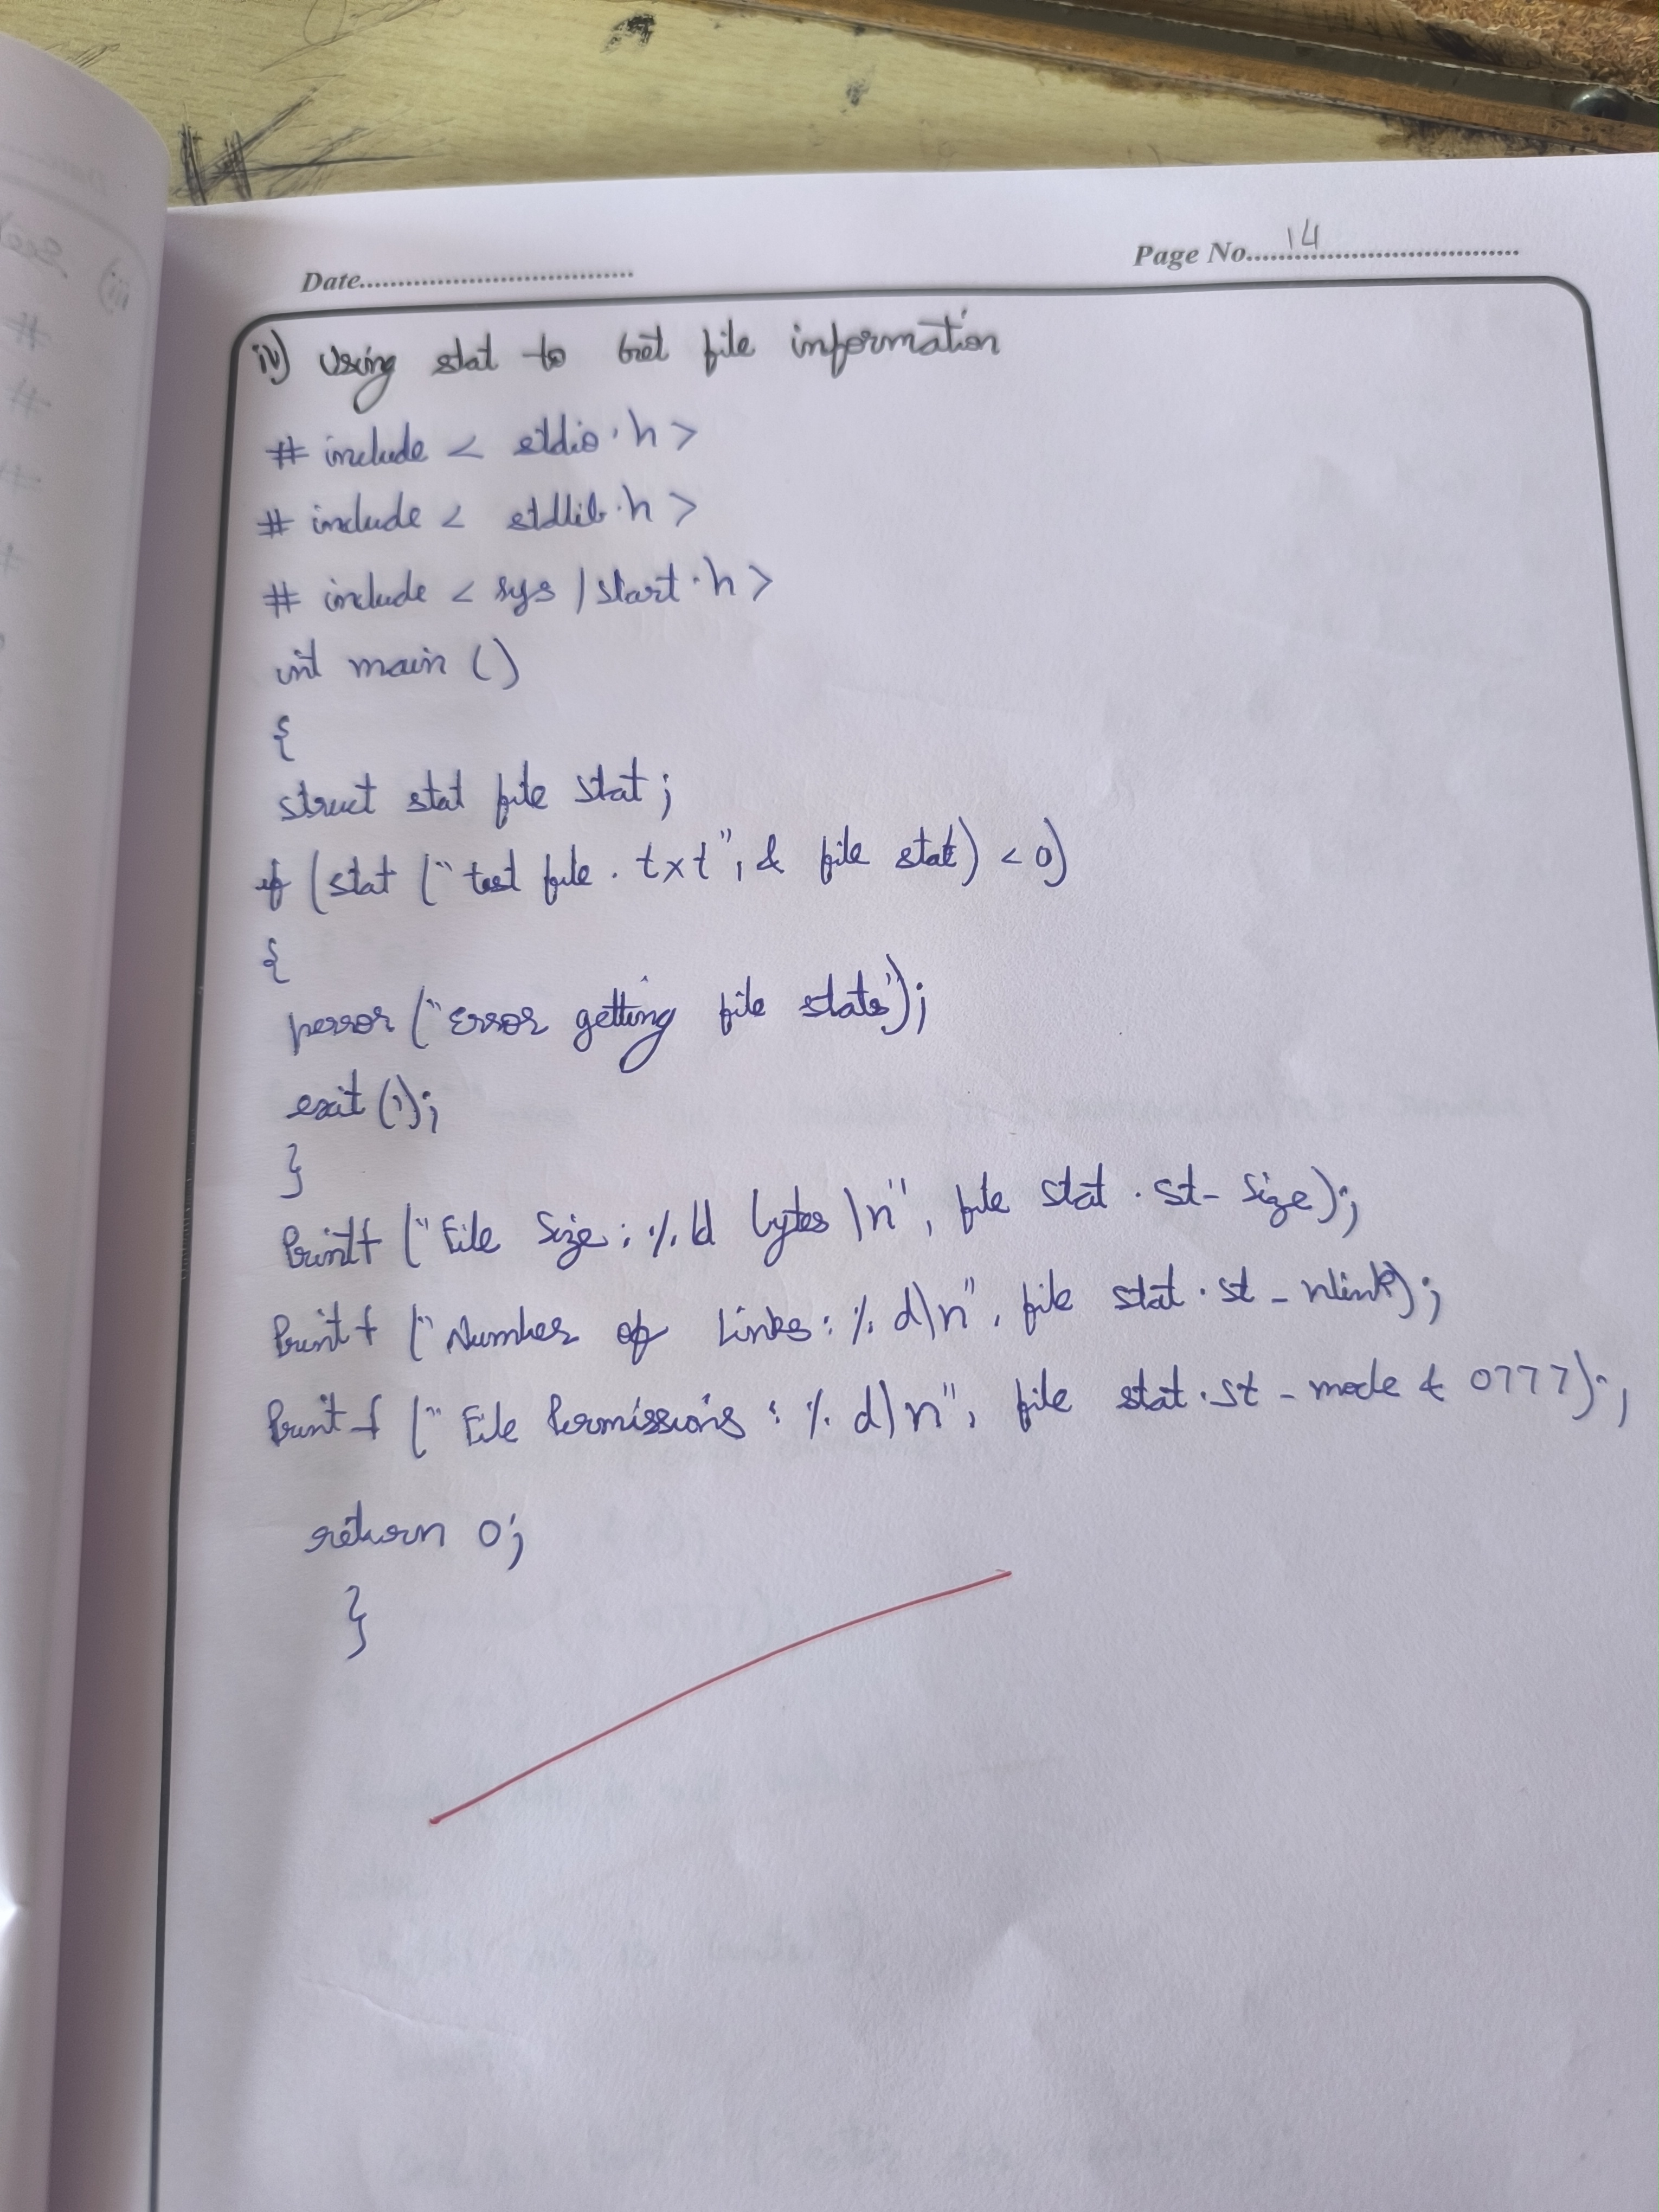 Date
Page No. 14
iv) Using stat to Get file information
# include < stdio.h >
# include < stdlib.h >
# include < sys / start.h >
int main ()
{
struct stat file stat;
if (stat ("test file . txt", & file stat) < 0)
{
perror ("Error getting file stats");
exit (1);
}
Printf ("File Size : %ld bytes \n", file stat . st- size);
Printf ("Number of Links : % d\n", file stat . st - nlink);
Printf ("File Permissions : % d\n", file stat . st - mode & 0777);
return 0;
}